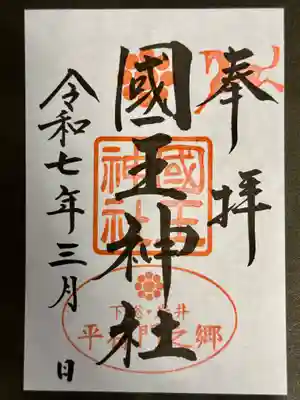 奉拝
國王神社
令和七年三月 日
國王
神社
下総・岩井
平将門之郷